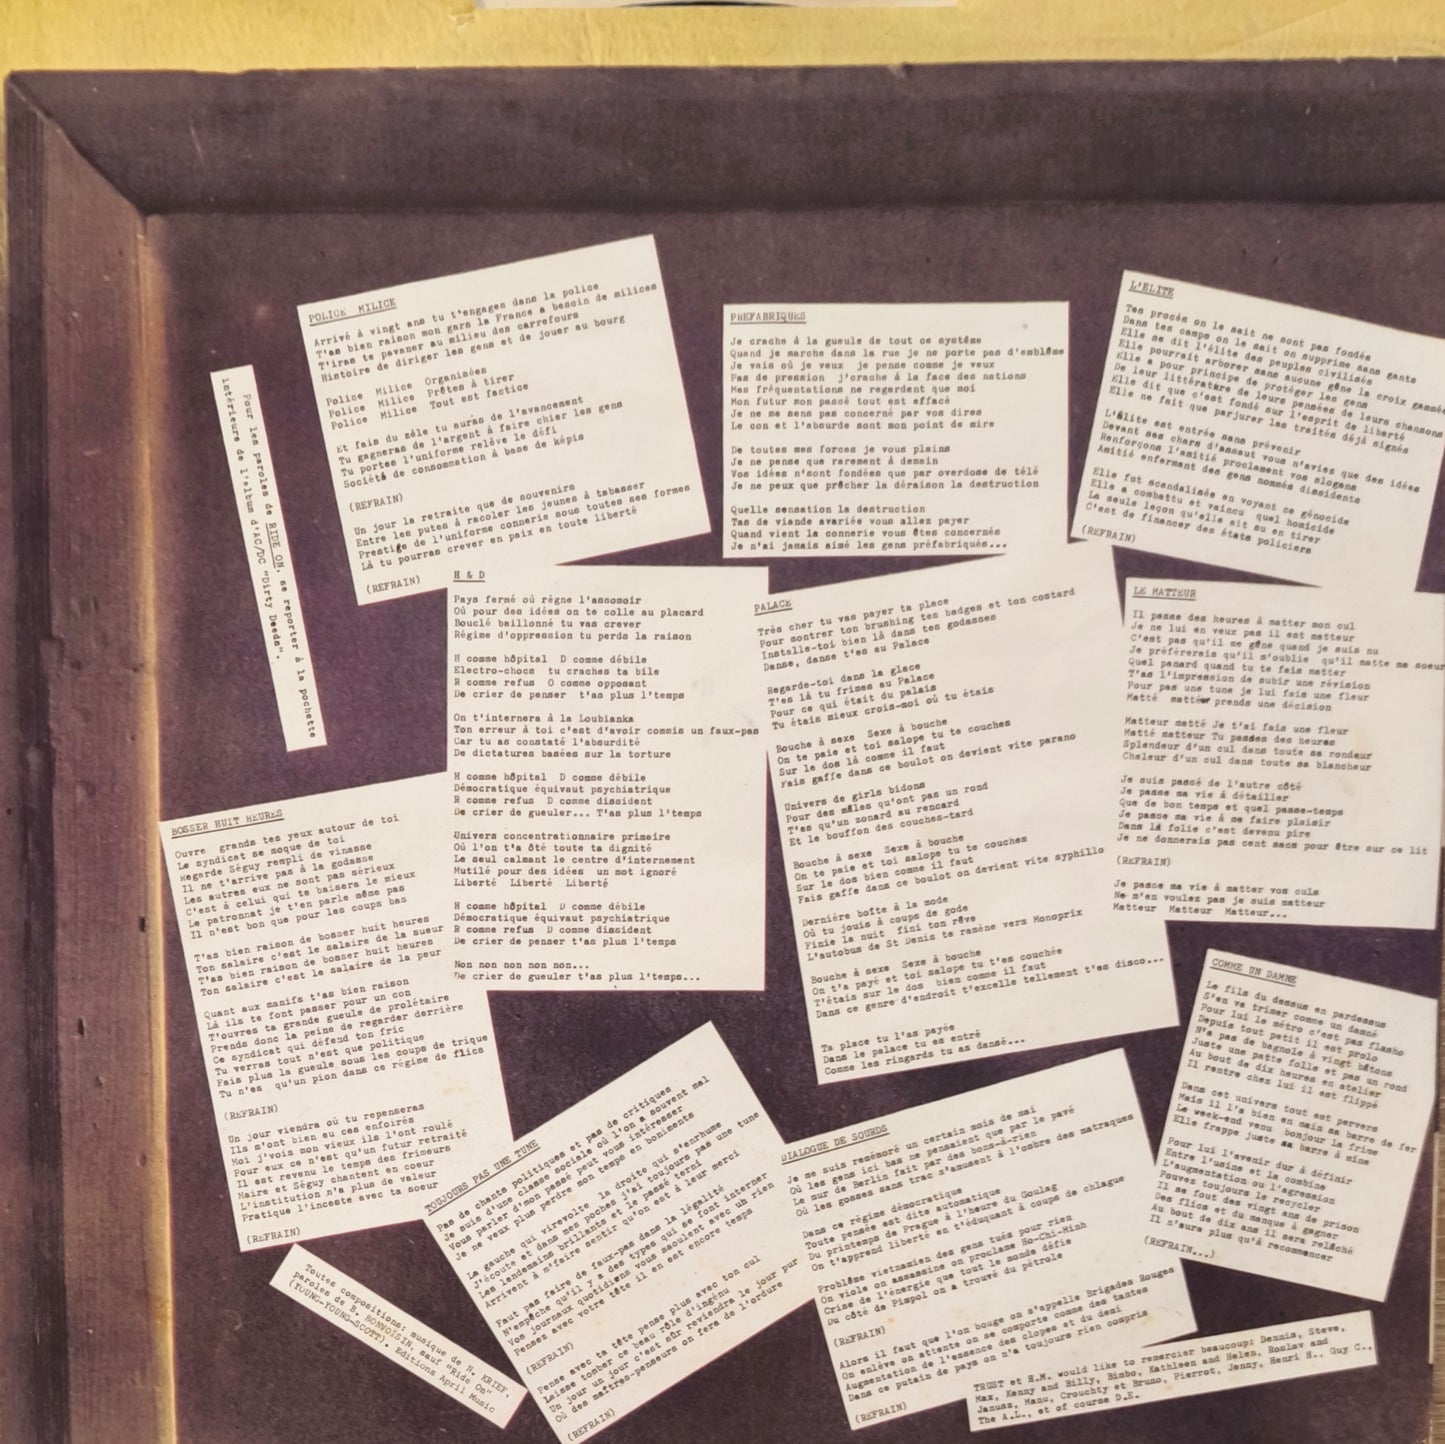 POLICE MILICE
Arrivé à vingt ans tu t'engages dans la police
T'as bien raison mon gars la France a besoin de milices
T'iras te pavaner au milieu des carrefours
Histoire de diriger les gens et de jouer au bourg
Police Milice Organisées
Police Milice Prêtes à tirer
Police Milice Tout est factice
Et fais du zèle tu auras de l'avancement
Tu gagneras de l'argent à faire chier les gens
Tu portes l'uniforme relève le défi
Société de consommation à base de képis
(REFRAIN)
Un jour la retraite que de souvenirs
Entre les putes à racoler les jeunes à tabasser
Prestige de l'uniforme connerie sous toutes ses formes
Là tu pourras crever en paix en toute liberté
(REFRAIN)
PREFABRIQUES
Je crache à la gueule de tout ce système
Quand je marche dans la rue je ne porte pas d'emblème
Je vais où je veux je pense comme je veux
Pas de pression j'crache à la face des nations
Mes fréquentations ne regardent que moi
Mon futur mon passé tout est effacé
Je ne me sens pas concerné par vos dires
Le con et l'absurde sont mon point de mire
De toutes mes forces je vous plains
Je ne pense que rarement à demain
Vos idées n'sont fondées que par overdose de télé
Je ne peux que prêcher la déraison la destruction
Quelle sensation la destruction
Tas de viande avariée vous allez payer
Quand vient la connerie vous êtes concernés
Je n'ai jamais aimé les gens préfabriqués...
L'ELITE
Tes procès on le sait ne sont pas fondés
Dans tes camps on le sait on supprime sans gants
Elle se dit l'élite des peuples civilisés
Elle pourrait arborer sans aucune gêne la croix gammée
Elle a pour principe de protéger les gens
De leur littérature de leurs pensées de leurs chansons
Elle dit que c'est fondé sur l'esprit de liberté
Elle ne fait que parjurer les traités déjà signés
L'élite est entrée sans prévenir
Devant ses chars d'assaut vous n'aviez que des idées
Renforçons l'amitié proclament vos slogans
Amitié enfermant des gens nommés dissidents
Elle fut scandalisée en voyant ce génocide
Elle a combattu et vaincu quel homicide
La seule leçon qu'elle ait su en tirer
C'est de financer des états policiers
(REFRAIN)
Pour les paroles de RIDE ON, se reporter à la pochette
intérieure de l'album d'AC/DC "Dirty Deeds".
H & D
Pays fermé où règne l'assomoir
Où pour des idées on te colle au placard
Bouclé baillonné tu vas crever
Régime d'oppression tu perds la raison
H comme hôpital D comme débile
Electro-chocs tu craches ta bile
R comme refus O comme opposant
De crier de penser t'as plus l'temps
On t'internera à la Loubianka
Ton erreur à toi c'est d'avoir commis un faux-pas
Car tu as constaté l'absurdité
De dictatures basées sur la torture
H comme hôpital D comme débile
Démocratique équivaut psychiatrique
R comme refus D comme dissident
De crier de gueuler... T'as plus l'temps
Univers concentrationnaire primaire
Où l'on t'a ôté toute ta dignité
Le seul calmant le centre d'internement
Mutilé pour des idées un mot ignoré
Liberté Liberté Liberté
H comme hôpital D comme débile
Démocratique équivaut psychiatrique
R comme refus D comme dissident
De crier de penser t'as plus l'temps
Non non non non non...
De crier de gueuler t'as plus l'temps...
PALACE
Très cher tu vas payer ta place
Pour montrer ton brushing tes badges et ton costard
Installe-toi bien là dans tes godasses
Danse, danse t'es au Palace
Regarde-toi dans la glace
T'es là tu frimes au Palace
Pour ce qui était du palais
Tu étais mieux crois-moi où tu étais
Bouche à sexe Sexe à bouche
On te paie et toi salope tu te couches
Sur le dos là comme il faut
Fais gaffe dans ce boulot on devient vite parano
Univers de girls bidons
Pour des mâles qu'ont pas un rond
T'es qu'un zonard au rencard
Et le bouffon des couches-tard
Bouche à sexe Sexe à bouche
On te paie et toi salope tu te couches
Sur le dos bien comme il faut
Fais gaffe dans ce boulot on devient vite syphillo
Dernière boîte à la mode
Où tu jouis à coups de gode
Finie la nuit fini ton rêve
L'autobus de St Denis te ramène vers Monoprix
Bouche à sexe Sexe à bouche
On t'a payé et toi salope tu t'es couchée
T'étais sur le dos bien comme il faut
Dans ce genre d'endroit t'excelle tellement t'es disco...
Ta place tu l'as payée
Dans le palace tu es entré
Comme les ringards tu as dansé...
LE MATTEUR
Il passe des heures à matter mon cul
Je ne lui en veux pas il est matteur
C'est pas qu'il me gêne quand je suis nu
Je préfèrerais qu'il m'oublie qu'il matte ma soeur
Quel panard quand tu te fais matter
T'as l'impression de subir une révision
Pour pas une tune je lui fais une fleur
Matté matteur prends une décision
Matteur matté Je t'ai fais une fleur
Matté matteur Tu passes des heures
Splendeur d'un cul dans toute sa rondeur
Chaleur d'un cul dans toute sa blancheur
Je suis passé de l'autre côté
Je passe ma vie à détailler
Que de bon temps et quel passe-temps
Je passe ma vie à me faire plaisir
Dans la folie c'est devenu pire
Je ne donnerais pas cent sacs pour être sur ce lit
(REFRAIN)
Je passe ma vie à matter vos culs
Ne m'en voulez pas je suis matteur
Matteur Matteur Matteur...
BOSSER HUIT HEURES
Ouvre grands tes yeux autour de toi
Le syndicat se moque de toi
Regarde Séguy rempli de vinasse
Il ne t'arrive pas à la godasse
Les autres eux ne sont pas sérieux
C'est à celui qui te baisera le mieux
Le patronnat je t'en parle même pas
Il n'est bon que pour les coups bas
T'as bien raison de bosser huit heures
Ton salaire c'est le salaire de la sueur
T'as bien raison de bosser huit heures
Ton salaire c'est le salaire de la peur
Quant aux manifs t'as bien raison
Là ils te font passer pour un con
T'ouvres ta grande gueule de prolétaire
Prends donc la peine de regarder derrière
Ce syndicat qui défend ton fric
Tu verras tout n'est que politique
Fais plus la gueule sous les coups de trique
Tu n'es qu'un pion dans ce régime de flics
(REFRAIN)
Un jour viendra où tu repenseras
Ils m'ont bien eu ces enfoirés
Moi j'vois mon vieux ils l'ont roulé
Pour eux ce n'est qu'un futur retraité
Il est revenu le temps des frimeurs
Maire et Séguy chantent en coeur
L'institution n'a plus de valeur
Pratique l'inceste avec ta soeur
(REFRAIN)
COMME UN DAMNE
Le fils du dessus en pardessus
S'en va trimer comme un damné
Pour lui le métro c'est pas flasho
Depuis tout petit il est prolo
N'a pas de bagnole à vingt bâtons
Juste une patte folle et pas un rond
Au bout de dix heures en atelier
Il rentre chez lui il est flippé
Dans cet univers tout est pervers
Mais il l'a bien en main sa barre de fer
Le week-end venu bonjour la frime
Elle frappe juste sa barre à mine
Pour lui l'avenir dur à définir
Entre l'usine et la combine
L'augmentation ou l'agression
Pouvez toujours le recycler
Il se fout des vingt ans de prison
Des flics et du manque à gagner
Au bout de dix ans il sera relâché
Il n'aura plus qu'à recommencer
(REFRAIN...)
TOUJOURS PAS UNE TUNE
Pas de chants politiques et pas de critiques
Je suis d'une classe sociale où l'on a souvent mal
Vous parler d'mon passé peut vous intéresser
Je ne veux plus perdre mon temps en boniments
La gauche qui virevolte la droite qui s'enrhume
J'écoute et dans mes poches j'ai toujours pas une tune
Les landemains brillants et le passé terni
Arrivent à m'faire sentir qu'on est à leur merci
Faut pas faire de faux-pas dans la légalité
N'empêche qu'il y a des types qui se font interner
Vos journaux quotidiens vous saoulent avec un rien
Pensez avec votre tête il en est encore temps
(REFRAIN)
Pense avec ta tête pense plus avec ton cul
Laisse tomber ce beau rôle d'ingénu
Un jour un jour c'est sûr reviendra le jour pur
Où des maîtres-penseurs on fera de l'ordure
(REFRAIN)
DIALOGUE DE SOURDS
Je me suis remémoré un certain mois de mai
Où les gens ici bas ne pensaient que par le pavé
Le mur de Berlin fait par des bons-à-rien
Où les gosses sans trac s'amusent à l'ombre des matraques
Dans ce régime démocratique
Toute pensée est dite automatique
Du printemps de Prague à l'heure du Goulag
On t'apprend liberté en t'éduquant à coups de chlague
Problème vietnamien des gens tués pour rien
On viole on assassine on proclame Ho-Chi-Minh
Crise de l'énergie que tout le monde défie
Du côté de Pimpol on a trouvé du pétrole
(REFRAIN)
Alors il faut que l'on bouge on s'appelle Brigades Rouges
On enlève on attente on se comporte comme des tantes
Augmentation de l'essence des clopes et du demi
Dans ce putain de pays on n'a toujours rien compris
(REFRAIN)
Toutes compositions: musique de N. KRIEF,
paroles de B. BONVOISIN, sauf "Ride On"
(YOUNG-YOUNG-SCOTT). Editions April Music
TRUST et H.M. would like to remercier beaucoup: Dennis, Steve,
Max, Kenny and Billy, Bimbo, Kathleen and Helen, Roslav and
Janusz, Manu, Crouchty et Bruno, Pierrot, Jenny, Henri H., Guy C.,
The A.L., et of course D.E.